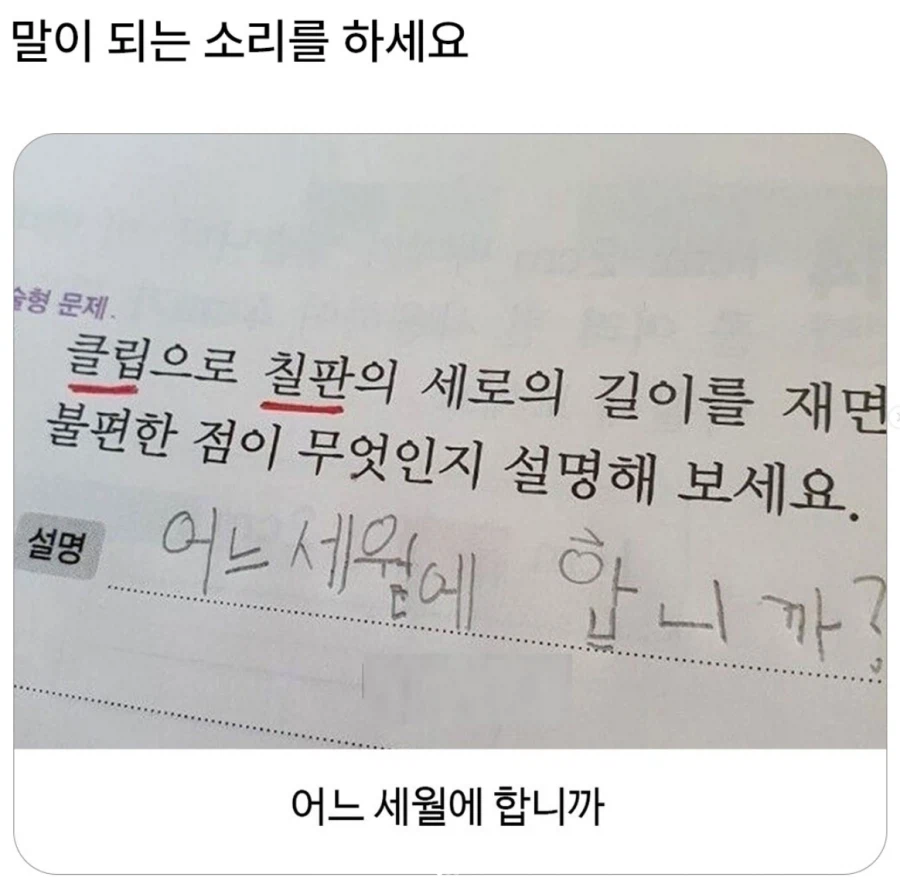 말이 되는 소리를 하세요
술형 문제.
클립으로 칠판의 세로의 길이를 재면
불편한 점이 무엇인지 설명해 보세요.
설명 어느 세월에 합니까?
어느 세월에 합니까